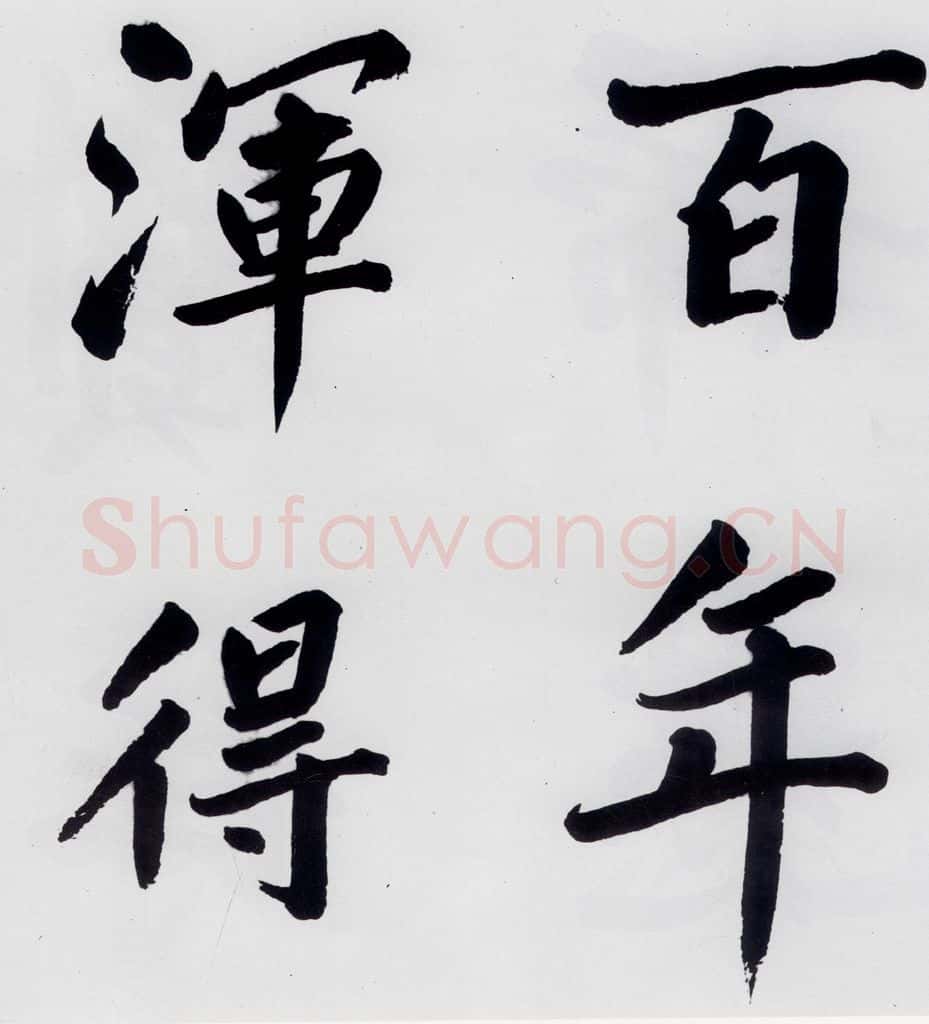 百年
渾得
Shufawang.CN